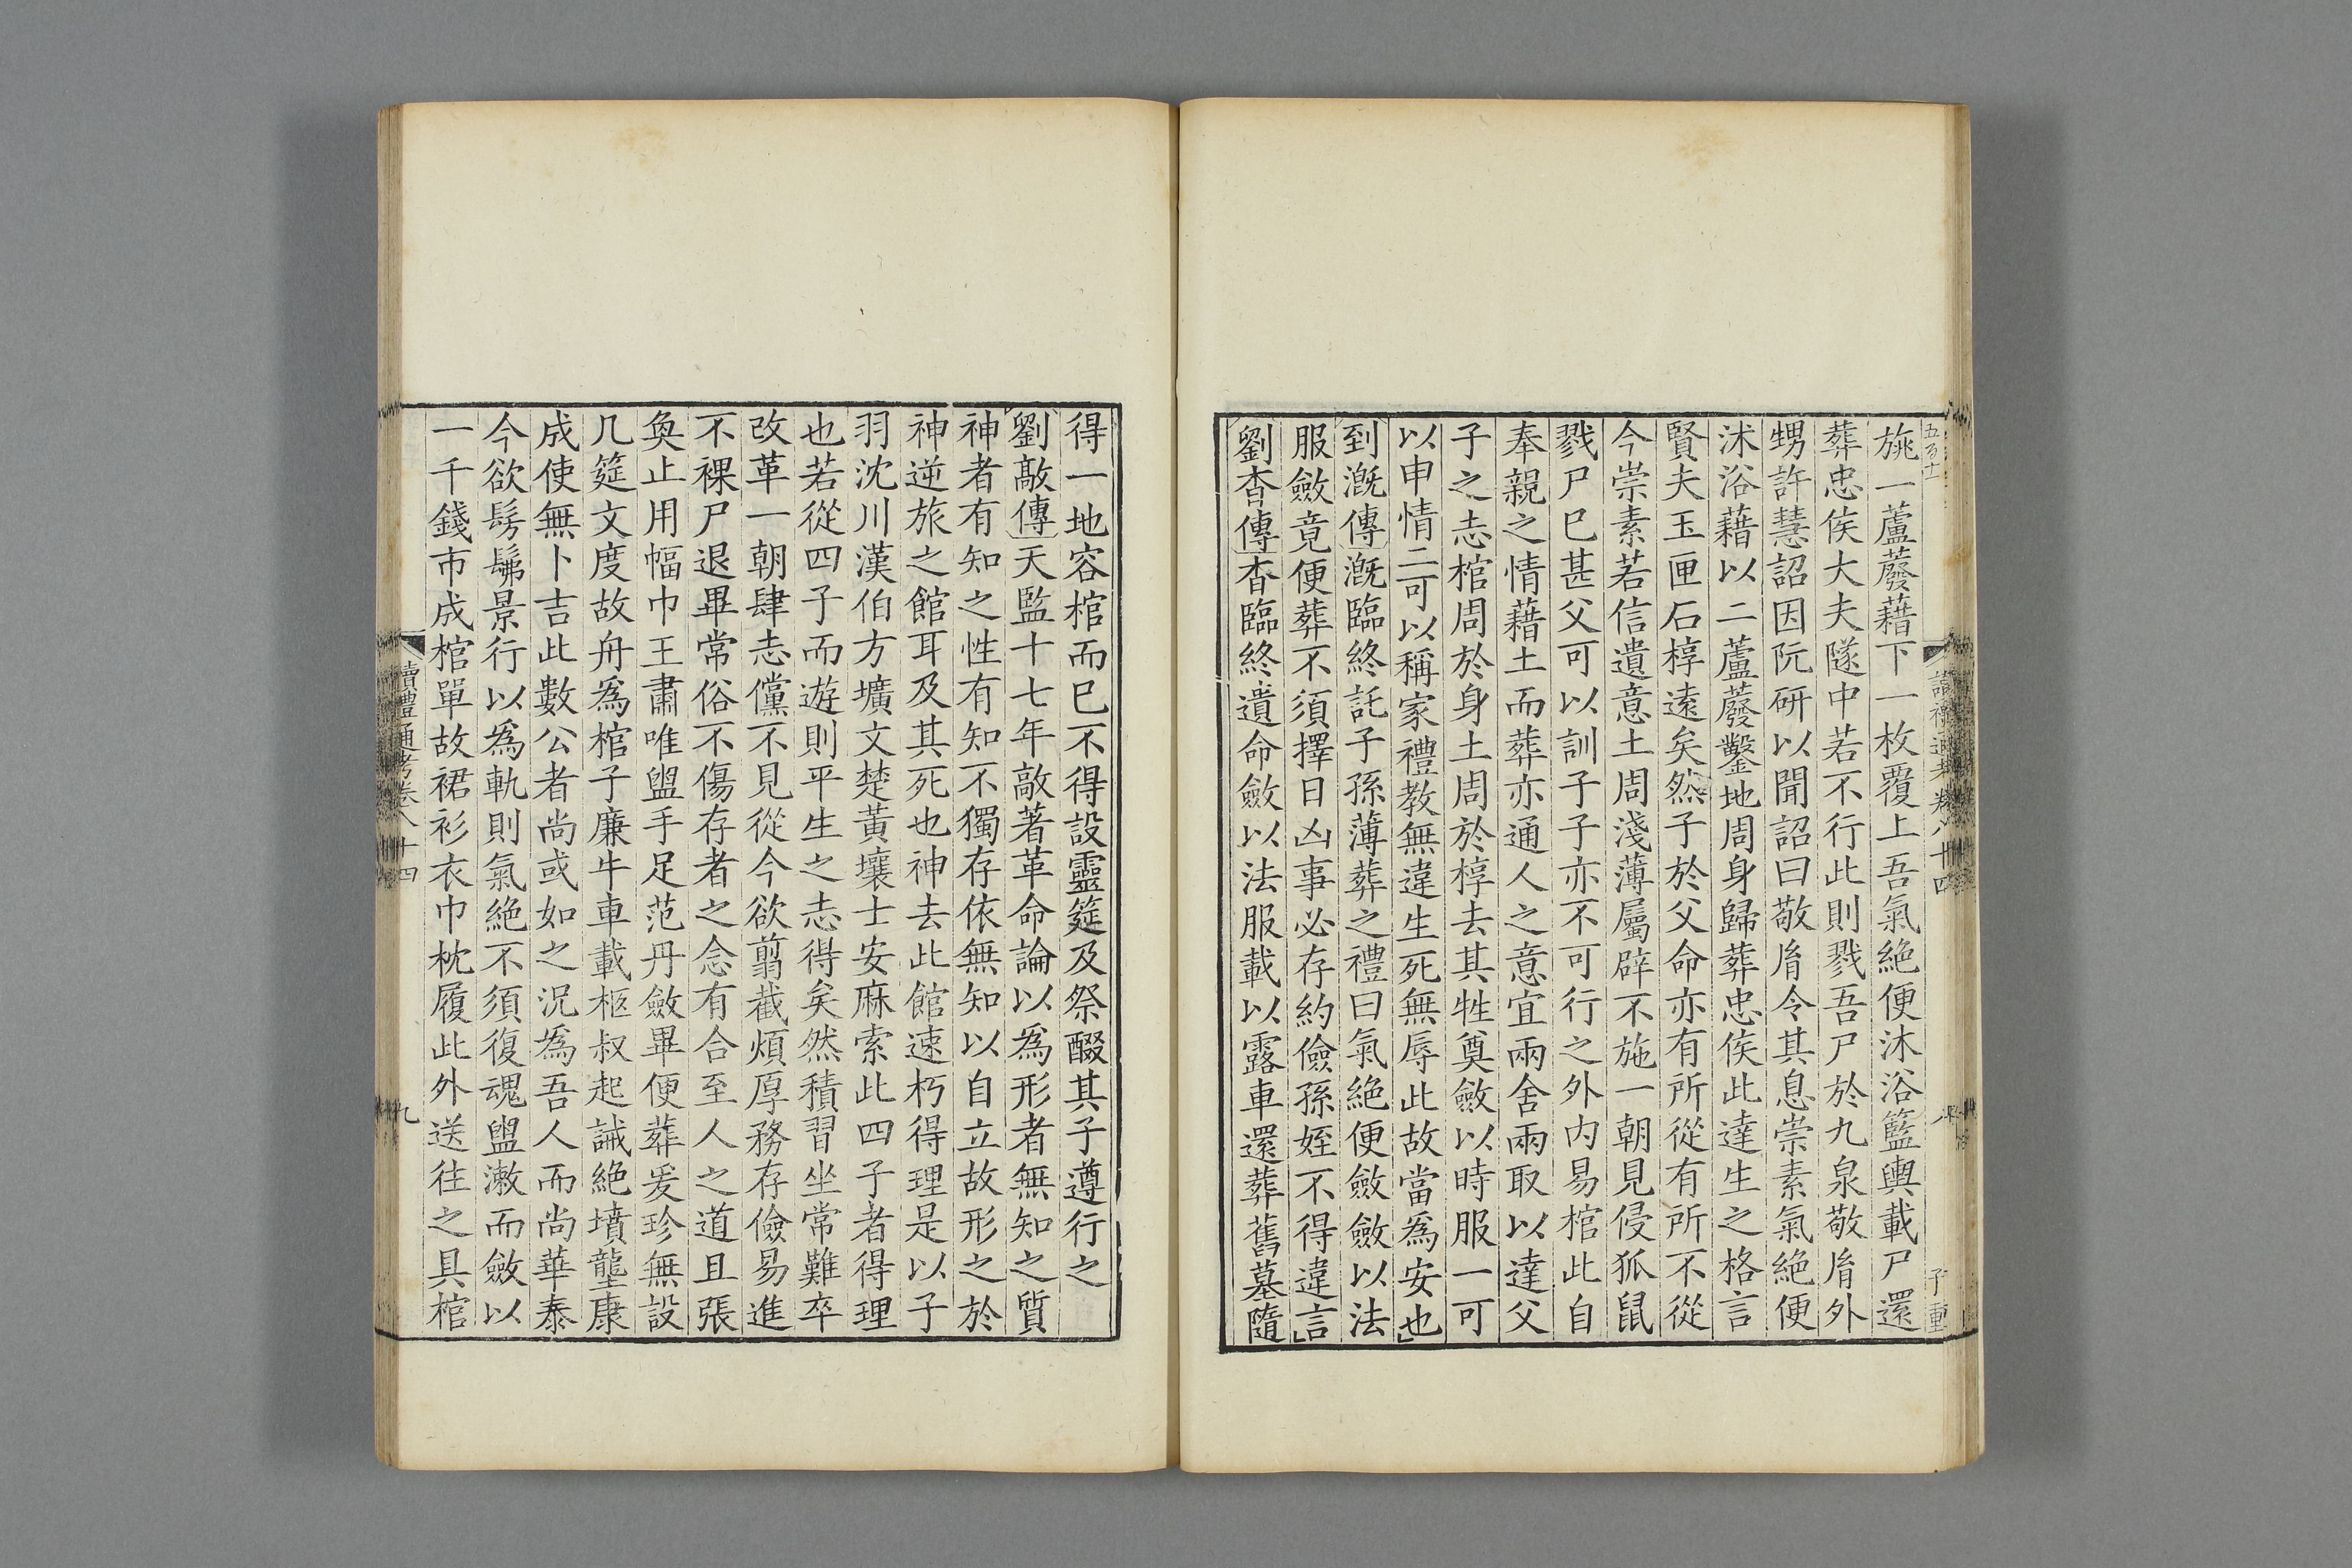 五百十
旐一蘆蕟藉下一枚覆上吾氣絕便沐浴籃輿載尸還
葬忠侯大夫隧中若不行此則戮吾尸於九泉敬胤外
甥許慧詔因阮研以聞詔曰敬胤令其息崇素氣絕便
沐浴藉以二蘆蕟鑿地周身歸葬忠侯此達生之格言
賢夫玉匣石椁遠矣然子於父命亦有所從有所不從
今崇素若信遺意土周淺薄屬辟不施一朝見侵狐鼠
戮尸已甚父可以訓子子亦不可行之外内易棺此自
奉親之情藉土而葬亦通人之意宜兩舍兩取以達父
子之志棺周於身土周於椁去其牲奠斂以時服一可
以申情二可以稱家禮教無違生死無辱此故當爲安也
到漑傳漑臨終託子孫薄葬之禮曰氣絕便斂斂以法
服斂竟便葬不須擇日凶事必存約儉孫姪不得違言
劉杳傳杳臨終遺命斂以法服載以露車還葬舊墓隨
讀禮通考卷八十四
八
得一地容棺而已不得設靈筵及祭醊其子遵行之
劉敲傳天監十七年敲著革命論以爲形者無知之質
神者有知之性有知不獨存依無知以自立故形之於
神逆旅之館耳及其死也神去此館速朽得理是以子
羽沈川漢伯方壙文楚黃壤士安麻索此四子者得理
也若從四子而遊則平生之志得矣然積習坐常難卒
改革一朝肆志儻不見從今欲翦截煩厚務存儉易進
不裸尸退畢常俗不傷存者之念有合至人之道且張
奐止用幅巾王肅唯盥手足范丹斂畢便葬爰珍無設
几筵文度故舟爲棺子廉牛車載柩叔起誡絕墳壟康
成使無卜吉此數公者尚或如之況爲吾人而尚華泰
今欲髣髴景行以爲軌則氣絕不須復魂盥漱而斂以
一千錢市成棺單故裙衫衣巾枕履此外送往之具棺
讀禮通考卷八十四
九